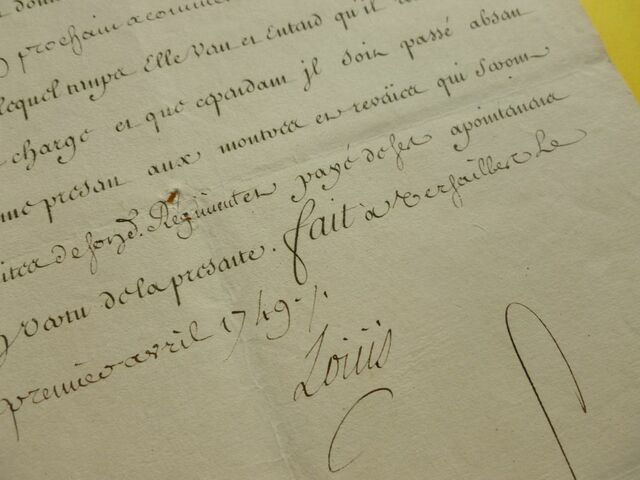 prochain a commencer
lequel temps Elle veut et Entend qu'il
charge et que cependant jl soit passé absent
comme present aux montres et reveües qui seront
faites de son d. Régiment et payé de ses apointemens
vertu de la presente. fait a Versailles le
premier avril 1749 /.
Louis